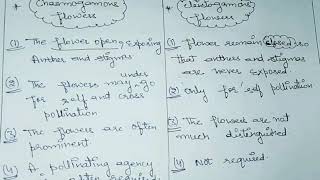 * Chasmogamous
flowers
(1) The flower open, exposing
Anther and stigma
(2) The flowers may go under
for self and cross
pollination
(3) The flowers are often
prominent
(4) A pollinating agency
is often required
* Cleistogamous
flowers
(1) flower remain closed so
that anthers and stigmas
are never exposed
(2) Only for self pollination
(3) The flowers are not
much distinguished
(4) Not required.